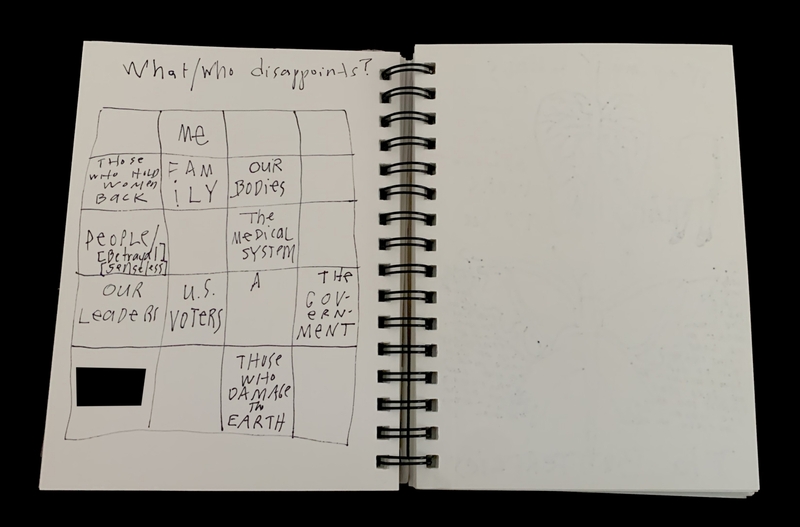 What/who disappoints?
Me
THOSE
WHO HOLD
WOMEN
BACK
FAM
iLY
OUR
BODiES
PEOPLE/
[Betrayal]
[Senseless]
The
MEDiCAL
SYSTEM
OUR
LEADERS
U.S.
VOTERS
A
THE
GOV-
ERN-
MENT
THOSE
WHO
DAMAGE
The
EARTH